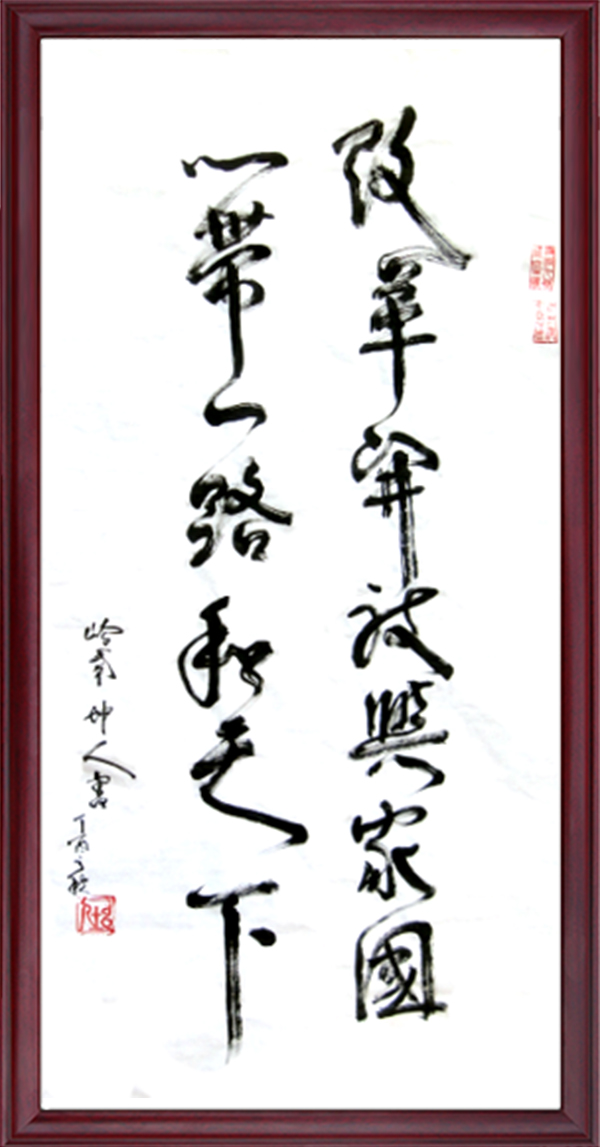 改革開放興家國
一帶一路和天下
岭南坤人書
丁酉之秋